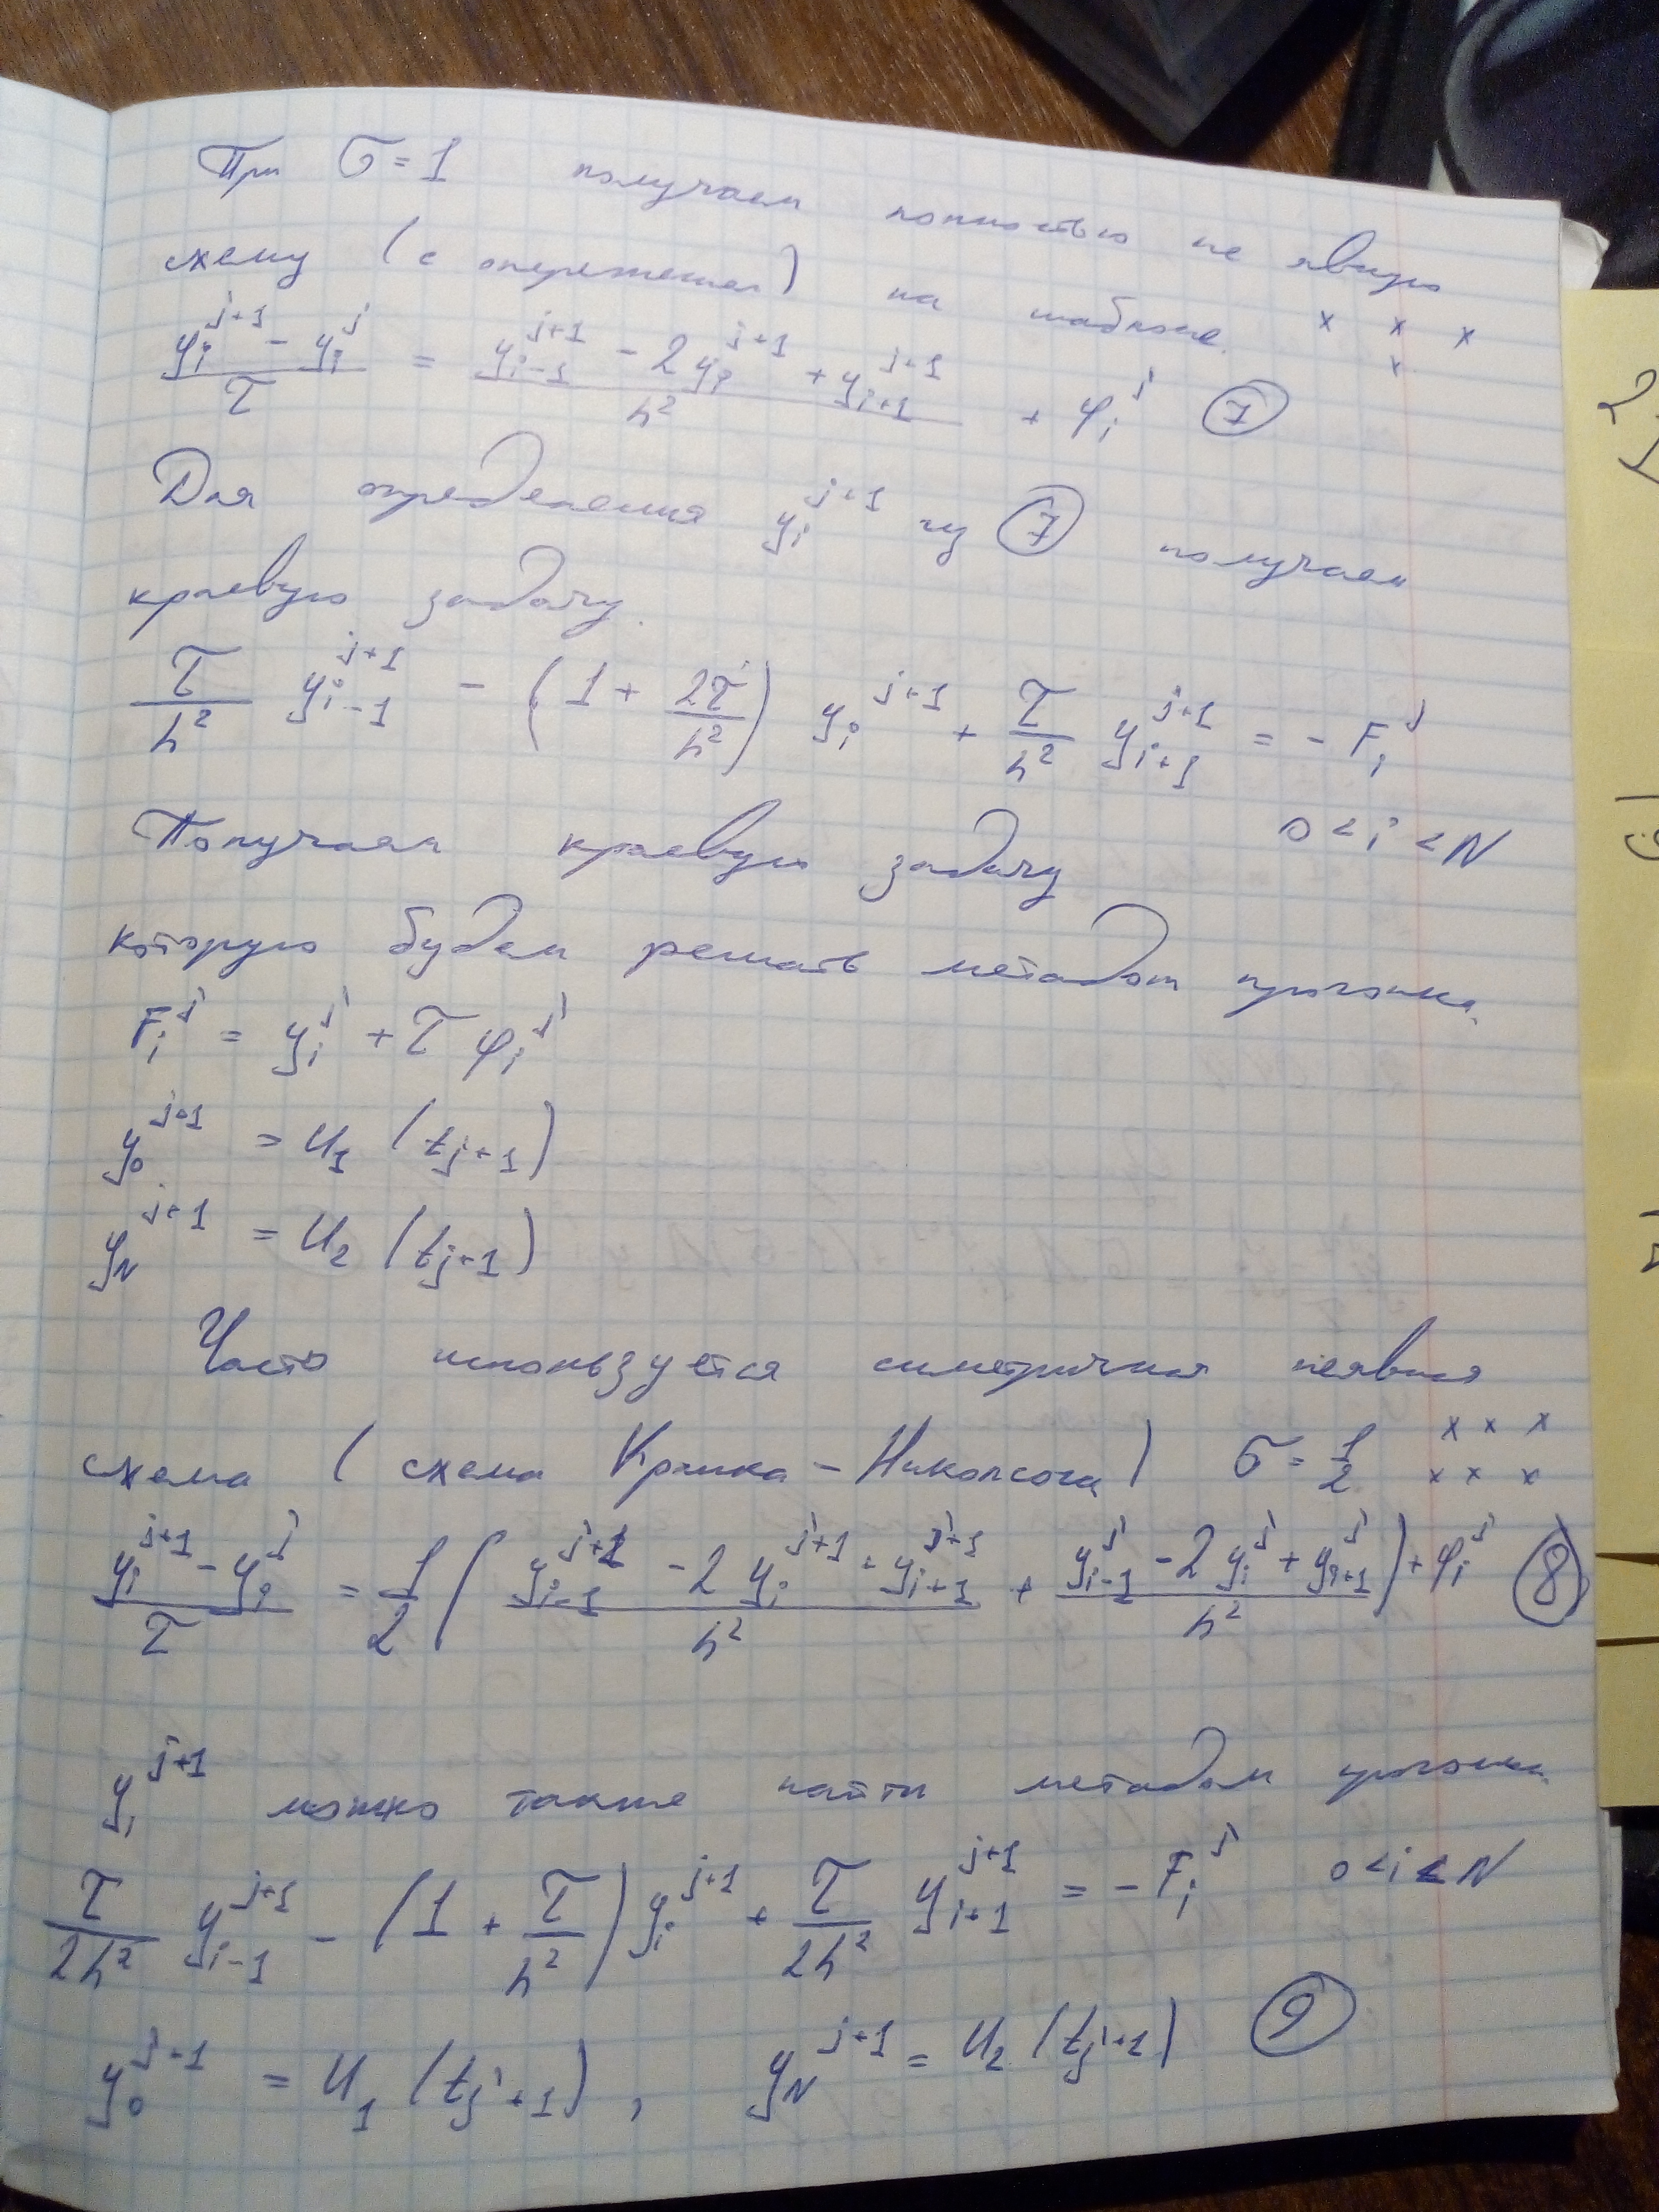 При σ = 1 получаем полностью не явную
схему (с опережением) на шаблоне. x x x
x
(y_i^{j+1} - y_i^j)/τ = (y_{i-1}^{j+1} - 2y_i^{j+1} + y_{i+1}^{j+1})/h² + φ_i^j (7)
Для определения y_i^{j+1} из (7) получаем
краевую задачу.
τ/h² y_{i-1}^{j+1} - (1 + 2τ/h²) y_i^{j+1} + τ/h² y_{i+1}^{j+1} = - F_i^j
0 < i < N
Получаем краевую задачу
которую будем решать методом прогонки.
F_i^j = y_i^j + τ φ_i^j
y_0^{j+1} = u_1 (t_{j+1})
y_N^{j+1} = u_2 (t_{j+1})
Часто используется симетричная неявная
схема (схема Кранка - Николсона) σ = 1/2 x x x
x x x
(y_i^{j+1} - y_i^j)/τ = 1/2 ((y_{i-1}^{j+1} - 2y_i^{j+1} + y_{i+1}^{j+1})/h² + (y_{i-1}^j - 2y_i^j + y_{i+1}^j)/h²) + φ_i^j (8)
y_i^{j+1} можно также найти методом прогонки.
τ/2h² y_{i-1}^{j+1} - (1 + τ/h²) y_i^{j+1} + τ/2h² y_{i+1}^{j+1} = - F_i^j 0 < i < N
y_0^{j+1} = u_1 (t_{j+1}), y_N^{j+1} = u_2 (t_{j+1}) (9)